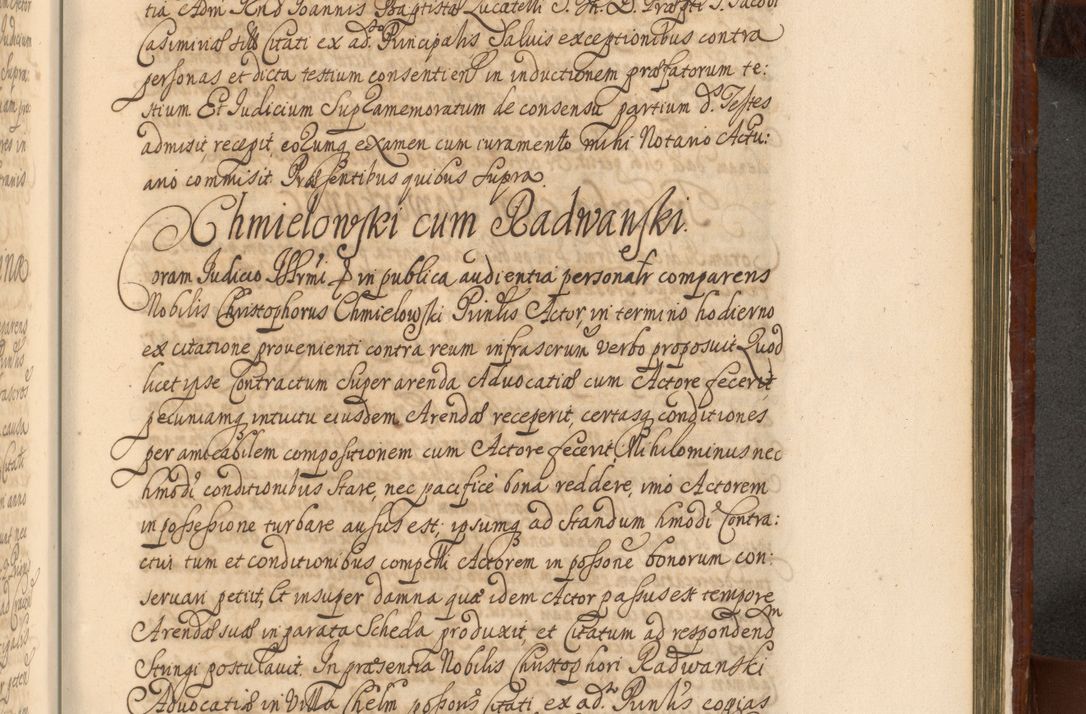 tia Adm Rnd Joannis Baptistæ Lucatelli S. Th. D. Præpti S. Jacobi
Casimiriæ sui Citati ex ad. Principalis Salvis exceptionibus contra
personas et dicta testium consentien in inductionem præfatorum te:
stium Et Judicium Supramemoratum de consensu partium d. Testes
admisit, recepit, eorumq examen cum iuramento mihi Notario Actu:
ario commisit. Præsentibus quibus supra.
Chmielowski cum Radwanski.
Coram Judicio Illrmi in publica audientia personalr comparens
Nobilis Christophorus Chmielowski Prinlis Actor in termino hodierno
ex citatione provenienti contra reum infrascrum verbo proposuit Quod
licet ipse Contractum super arenda Advocatiæ cum Actore fecerit
pecuniamq intuitu eiusdem Arendæ receperit, certasq conditiones
per amicabilem compositionem cum Actore fecerit, Nihilominus nec
hmodi conditionibus stare, nec pacifice bona reddere, imo Actorem
in possessione turbare ausus est: ipsumq ad standum hmodi Contra:
ctui tum et conditionibus compelli Actorem in possone bonorum con:
servari petiit, Et insuper damna quæ idem Actor passus est tempore
Arendæ suæ in parata Scheda produxit, et Citatum ad respondendm
Stringi postulavit. In præsentia Nobilis Christophori Radwanski
Advocatiæ in Villa Chelm possoris Citati ex ad. Prinlis copias